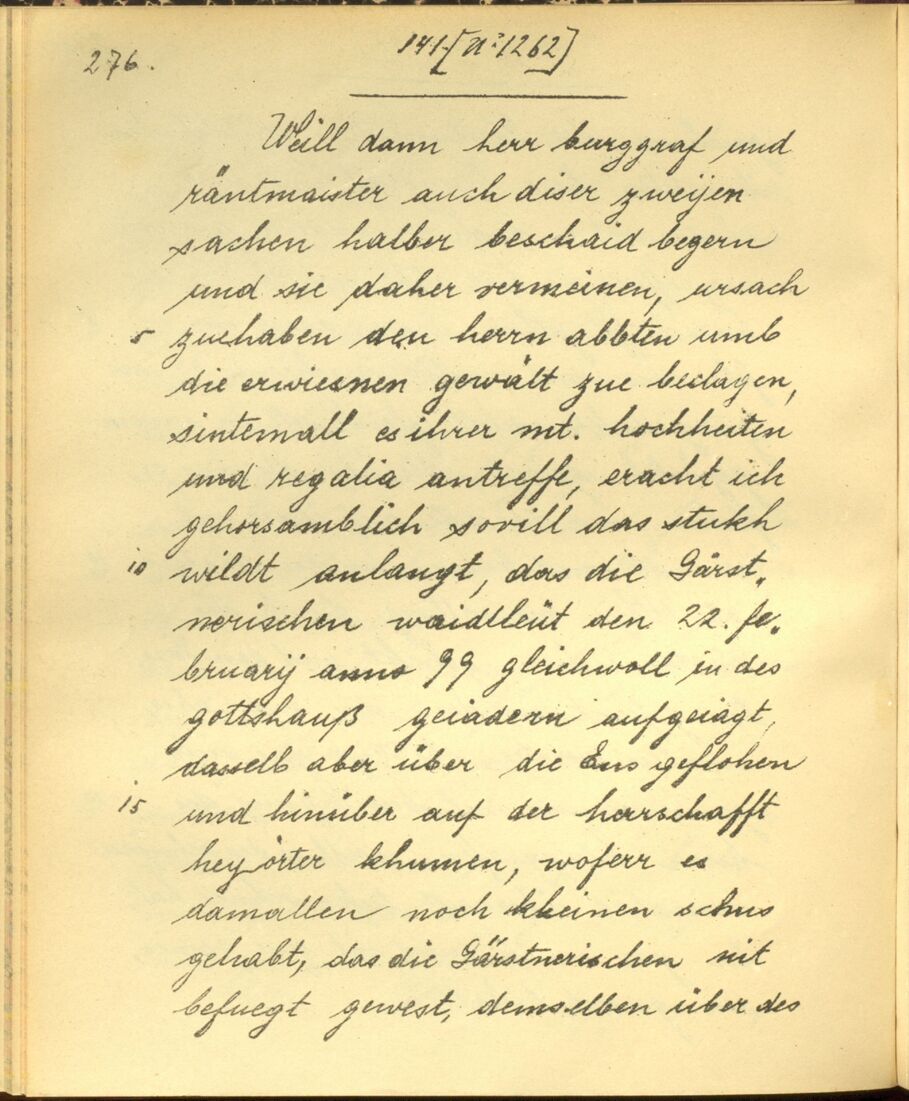 276.
141.[No 1262]
Weill dann herr burggraf und
räntmaister auch diser zweijen
sachen halber beschaid begern
und sie daher vermeinen, ursach
5 zuehaben den herrn abbten umb
die erwiesnen gewält zue beclagen,
sintemall es ihrer mt. hochheiten
und regalia antreffe, eracht ich
gehorsamblich sovill das stukh
10 wildt anlangt, das die Gärst„
nerischen waidleüt den 22. fe„
bruarij anno 99 gleichwoll in des
gottshauß geiadern aufgeiagt,
dasselb aber über die Ens geflohen
15 und hinüber auf der herrschafft
hey örter khumen, woferr es
damallen noch kheinen schus
gehabt, das die Gärstnerischen nit
befuegt gewest, demselben über des